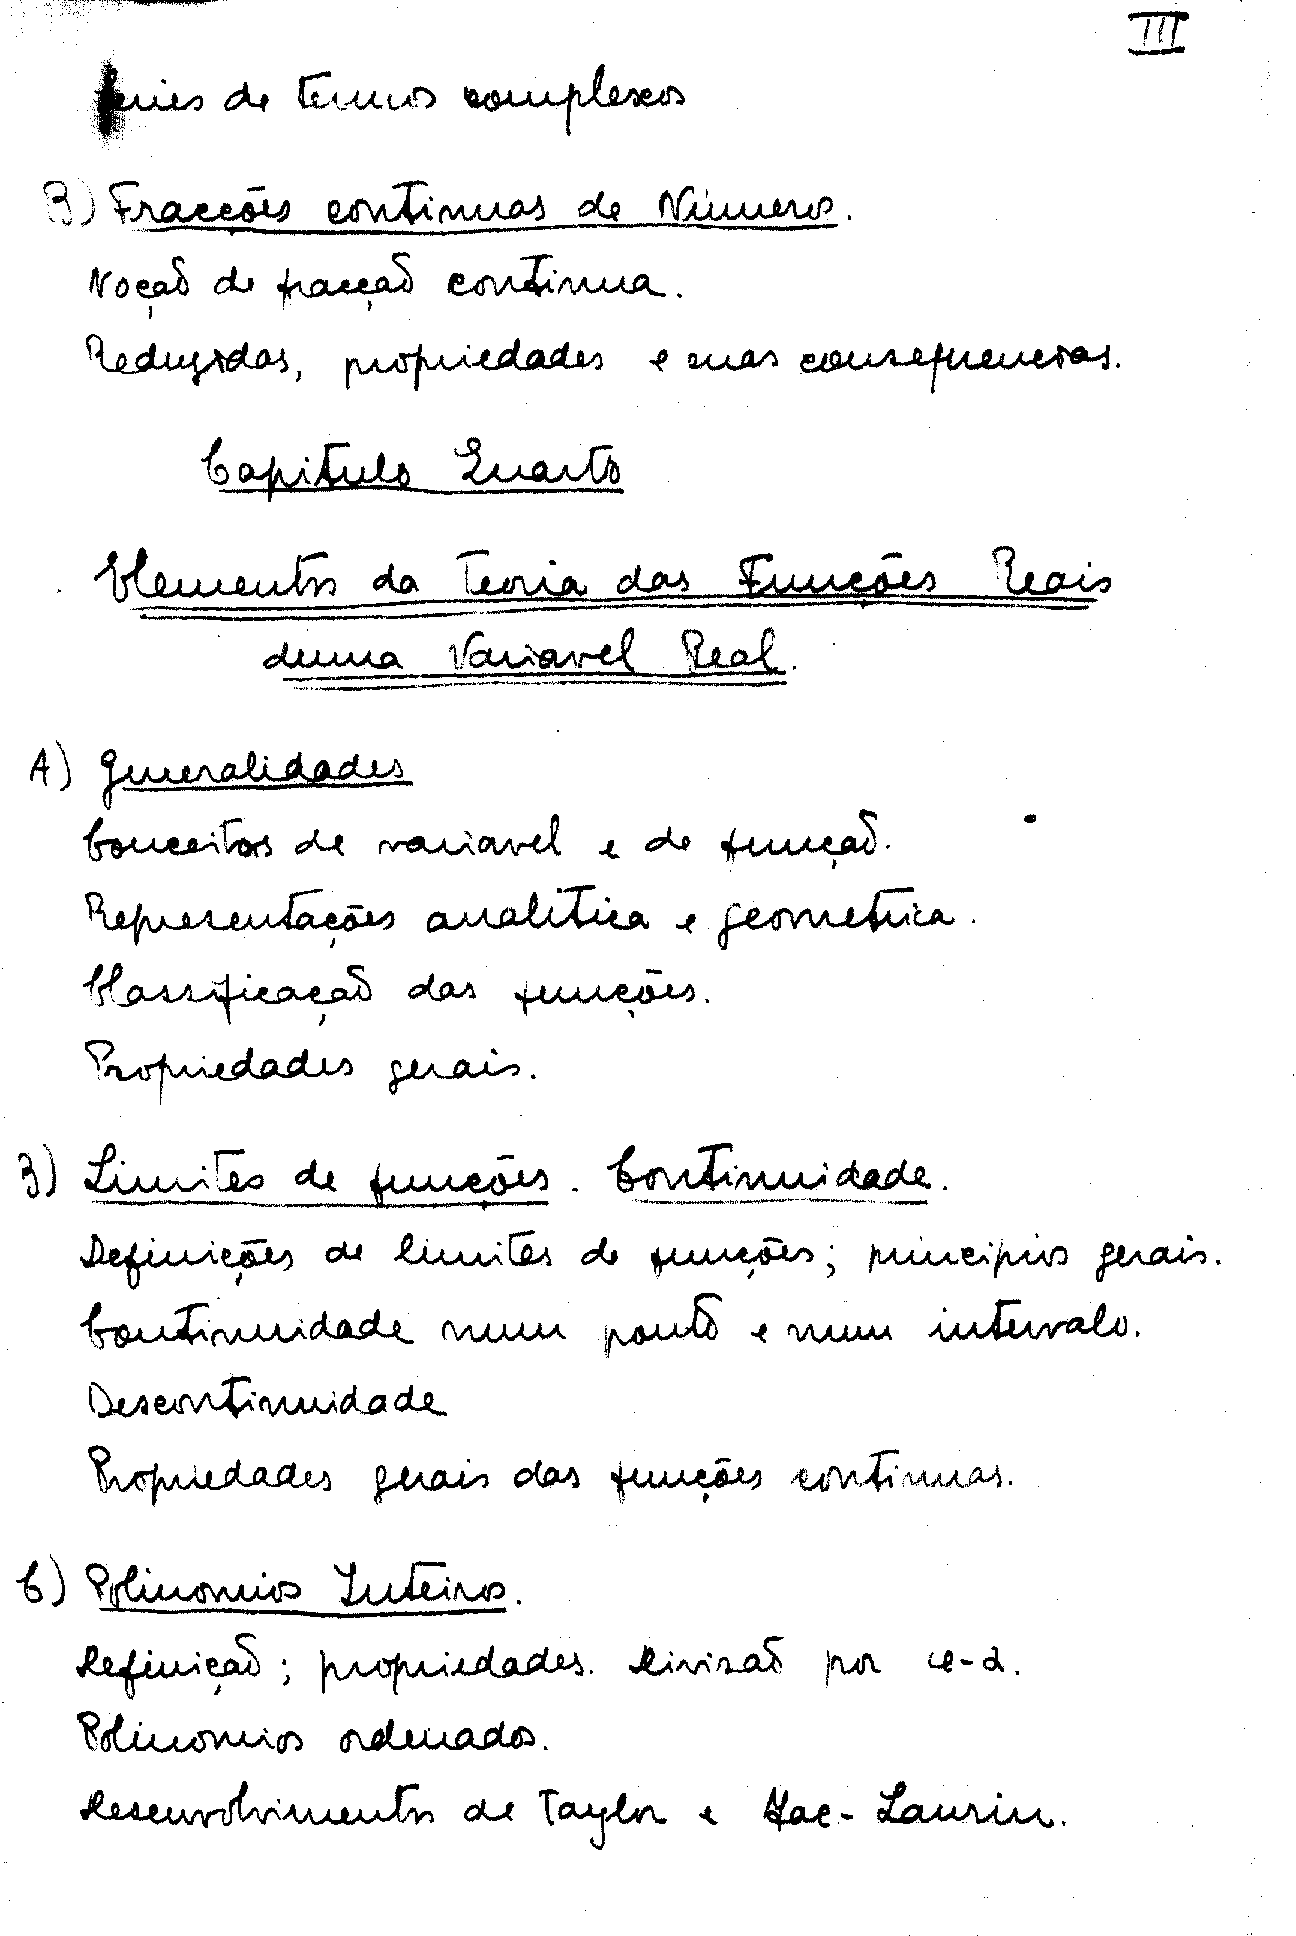 III
Series de termos complexos
B) Fracções continuas de Números.
Noção de fracção continua.
Reduzidas, propriedades e suas consequencias.
Capitulo Quarto
Elementos da Teoria das Funções Reais
duma Variavel Real.
A) Generalidades
Conceitos de variavel e de função.
Representações analitica e geometrica.
Classificação das funções.
Propriedades gerais.
B) Limites de funções. Continuidade.
Definições de limites de funções; principios gerais.
Continuidade num ponto e num intervalo.
Descontinuidade
Propriedades gerais das funções continuas.
C) Polinomios Inteiros.
Definição; propriedades. Divisão por x-α.
Polinomios ordenados.
Desenvolvimentos de Taylor e Mac-Laurin.